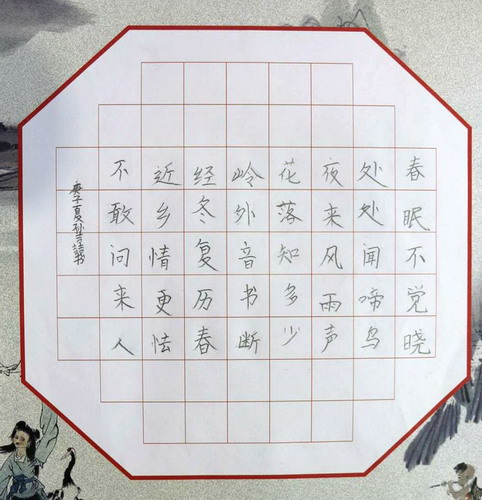 春眠不觉晓
处处闻啼鸟
夜来风雨声
花落知多少
岭外音书断
经冬复历春
近乡情更怯
不敢问来人
庚子夏孙书